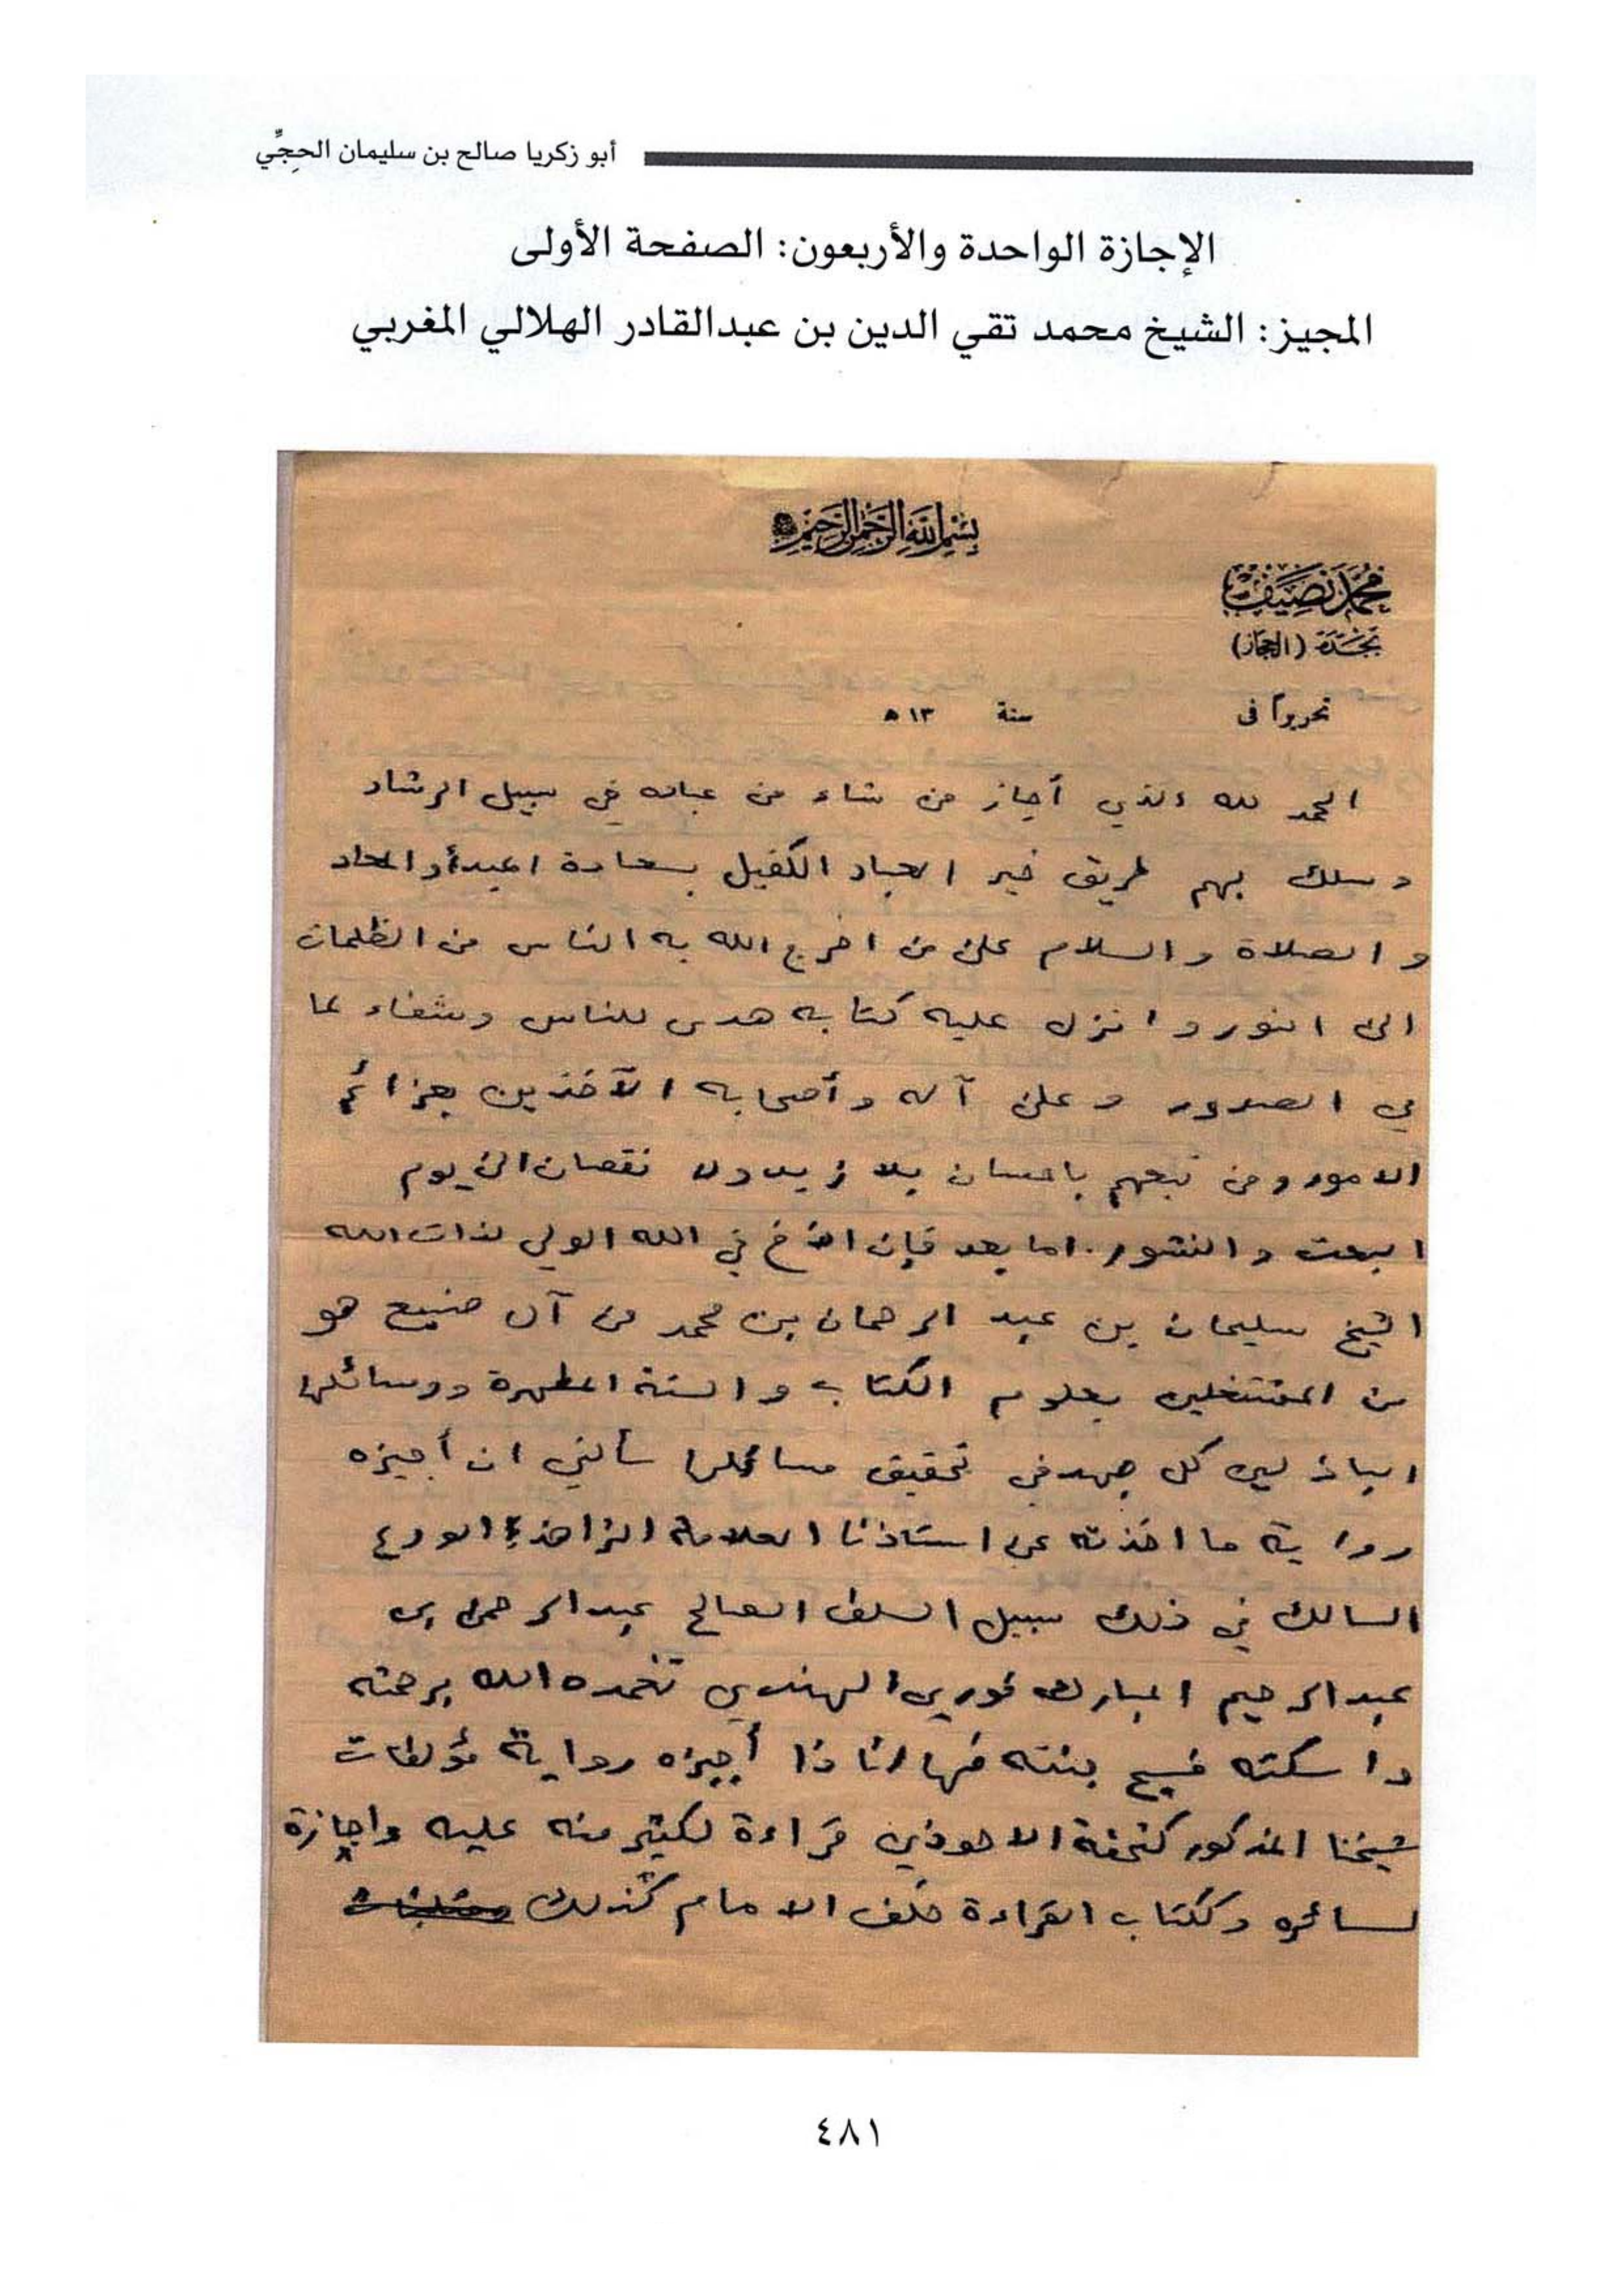 أبو زكريا صالح بن سليمان الحِجِّي
الإجازة الواحدة والأربعون: الصفحة الأولى
المجيز: الشيخ محمد تقي الدين بن عبدالقادر الهلالي المغربي
بسم الله الرحمن الرحيم
محمد نصيف
بجدة (الحجاز)
تحريراً فى سنة ١٣ ه
الحمد لله الذي أجاز من شاء من عباده في سبيل الرشاد
وسلك بهم طريق خير العباد الكفيل بسعادة المبدأ والمعاد
و الصلاة والسلام على من اخرج الله به الناس من الظلمات
الى النور وانزل عليه كتابه هدى للناس وشفاء لما
في الصدور وعلى آله وأصحابه الآخذين بعزائم
الامور ومن تبعهم باحسان بلا زيد ولا نقصان الى يوم
البعث والنشور. اما بعد فإن الاخ في الله الولي لذات الله
الشيخ سليمان بن عبد الرحمان بن محمد من آل صنيع هو
من المشتغلين بعلوم الكتاب والسنة المطهرة ووسائلها
الباذلين كل جهد في تحقيق مسائلها سألني ان أجيزه
رواية ما اخذته عن استاذنا العلامة الزاهد الورع
السالك في ذلك سبيل السلف الصالح عبد الرحمن بن
عبد الرحيم المباركفوري الهندي تغمده الله برحمته
واسكنه فسيح جنته فها انا ذا أجيزه رواية مؤلفات
شيخنا المذكور كتحفة الاحوذي قراءة لكثير منه عليه واجازة
لسائره وككتاب القراءة خلف الامام كذلك
٤٨١